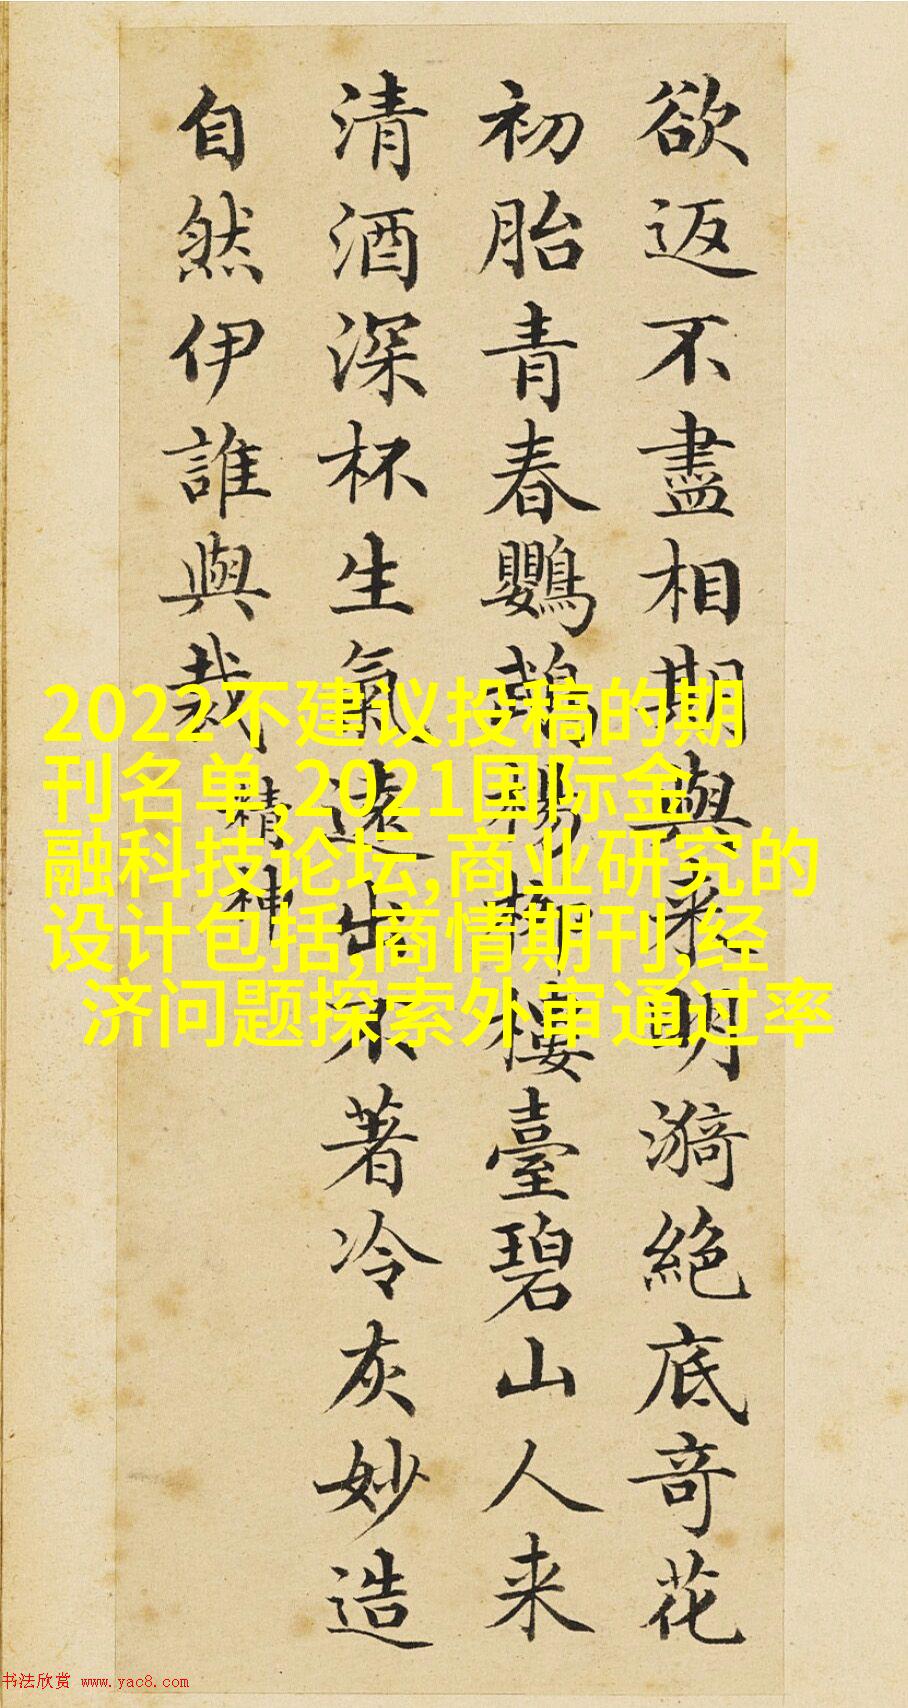 欲返不盡相期與来明漪絕底奇花
初胎青春鸚鵡楊柳樓臺碧山人来
清酒深杯生氣遠出不著冷灰妙造
自然伊誰與裁 精神
2022不建议投稿的期
刊名单,2021国际金
融科技论坛,商业研究的
设计包括,商情期刊,经
济问题探索外审通过率
书法欣赏 www.yac8.com